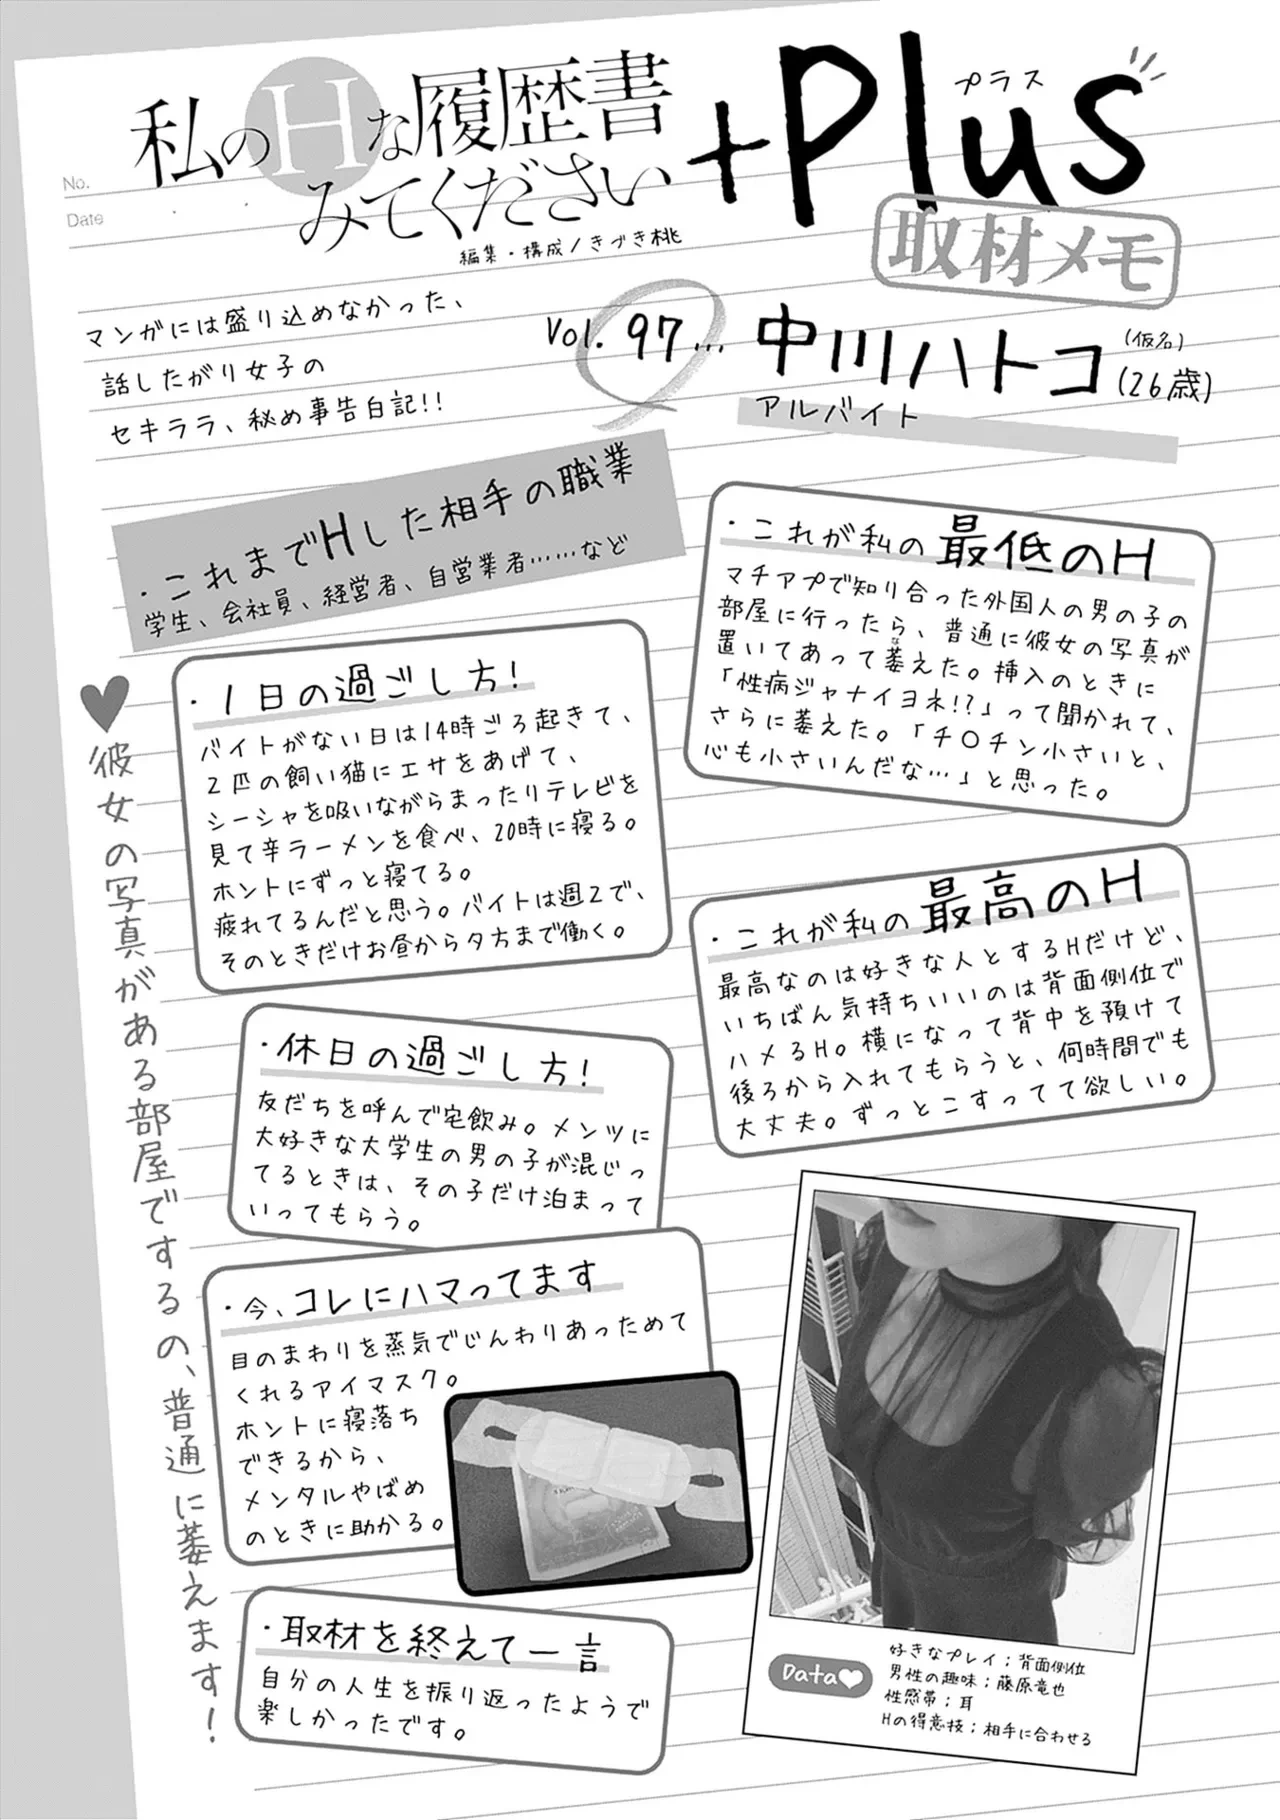 No.
Date
私のHな履歴書
みてください
+Plus
プラス
取材メモ
編集・構成/きづき桃
マンガには盛り込めなかった、
話したがり女子の
セキララ、秘め事告白記!!
Vol. 97…
中川ハトコ
(仮名)
(26歳)
アルバイト
・これまでHした相手の職業
学生、会社員、経営者、自営業者……など
・1日の過ごし方!
バイトがない日は14時ごろ起きて、
2匹の飼い猫にエサをあげて、
シーシャを吸いながらまったりテレビを
見て辛ラーメンを食べ、20時に寝る。
ホントにずっと寝てる。
疲れてるんだと思う。バイトは週2で、
そのときだけお昼から夕方まで働く。
・休日の過ごし方!
友だちを呼んで宅飲み。メンツに
大好きな大学生の男の子が混じっ
てるときは、その子だけ泊まって
いってもらう。
・今、コレにハマってます
目のまわりを蒸気でじんわりあっためて
くれるアイマスク。
ホントに寝落ち
できるから、
メンタルやばめ
のときに助かる。
・取材を終えて一言
自分の人生を振り返ったようで
楽しかったです。
・これが私の最低のH
マチアプで知り合った外国人の男の子の
部屋に行ったら、普通に彼女の写真が
置いてあって萎えた。挿入のときに
な
「性病ジャナイヨネ!?」って聞かれて、
さらに萎えた。「チ○チン小さいと、
心も小さいんだな…」と思った。
・これが私の最高のH
最高なのは好きな人とするHだけど、
いちばん気持ちいいのは背面側位で
ハメるH。横になって背中を預けて
後ろから入れてもらうと、何時間でも
大丈夫。ずっとこすってて欲しい。
♥彼女の写真がある部屋でするの、普通に萎えます!
Data♥
好きなプレイ;背面側位
男性の趣味;藤原竜也
性感帯;耳
Hの得意技;相手に合わせる